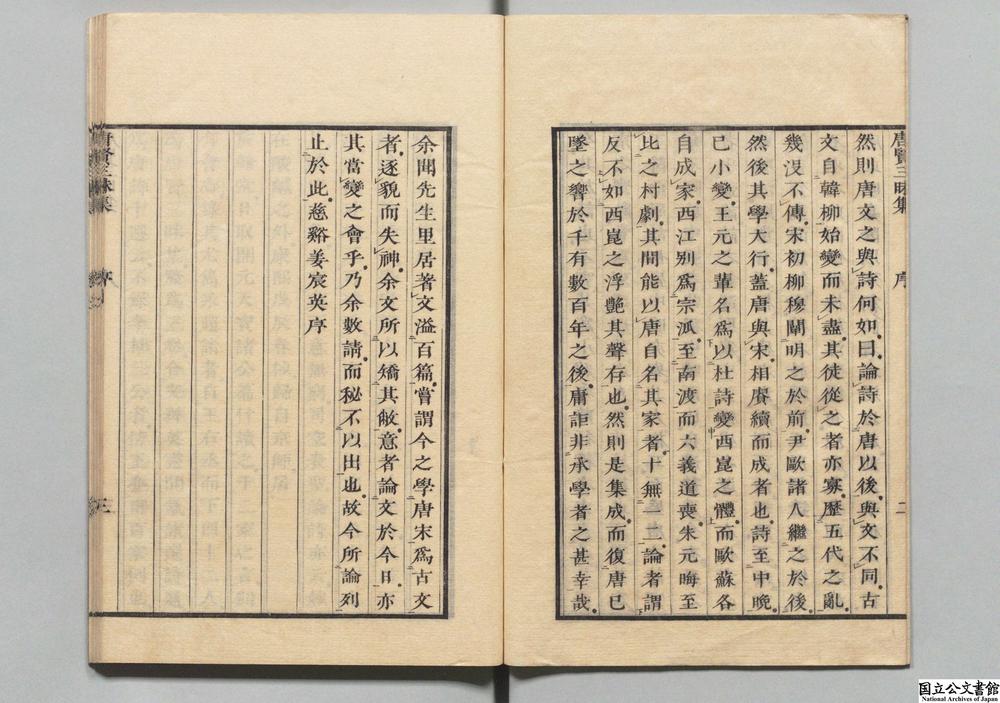 唐賢三昧集 序 二
然則唐文之與詩何如曰論詩於唐以後與文不同古
文自韓柳始變而未盡其徒從之者亦寡歷五代之亂
幾没不傳宋初柳穆闡明之於前尹歐諸人繼之於後
然後其學大行蓋唐與宋相賡續而成者也詩至中晚
已小變王元之輩名爲以杜詩變西崑之體而歐蘇各
自成家西江别爲宗泒至南渡而六義道喪朱元晦至
比之村劇其間能以唐自名其家者十無一二也論者謂
反不如西崑之浮艷其聲存也然則是集成而復唐已
墜之響於千有數百年之後庸詎非承學者之甚幸哉
余聞先生里居著文溢百篇嘗謂今之學唐宋爲古文
者逐貌而失神余文所以矯其敝意者論文於今日亦
其當變之會乎乃余數請而秘不以出也故今所論列
止於此慈谿姜宸英序
唐賢三昧集 序 三
国立公文書館
National Archives of Japan